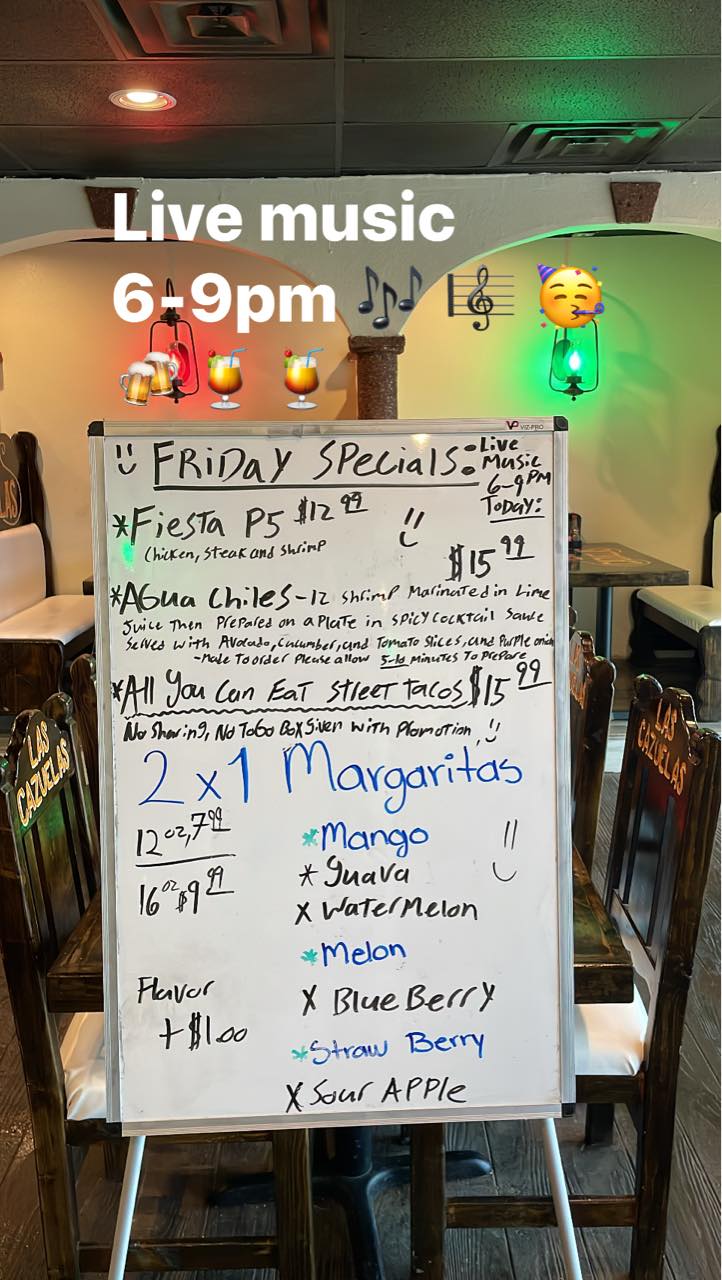 Live music
6-9pm 🎶 🎼 🥳
🍻🍹 🍹
VIZ-PRO
Friday Specials:
Live
Music
6-9PM
Today:
*Fiesta P5 $12.99
Chicken, Steak and Shrimp
$15.99
*Agua Chiles-12 Shrimp Marinated in Lime
Juice Then Prepared on a Plate in Spicy Cocktail Sause
Served with Avocado, Cucumber, and Tomato Slices, and Purple onion
-Made To order Please allow 5-10 Minutes To Prepare
*All You Can Eat Street Tacos $15.99
No Sharing, No ToGo Box Given with Plomotion
2x1 Margaritas
12oz, 7.99
16oz $9.99
*Mango
*Guava
x WaterMelon
*Melon
x BlueBerry
*Straw Berry
x Sour Apple
Flavor
+$1.00
LAS
CAZUELAS
LAS
CAZUELAS